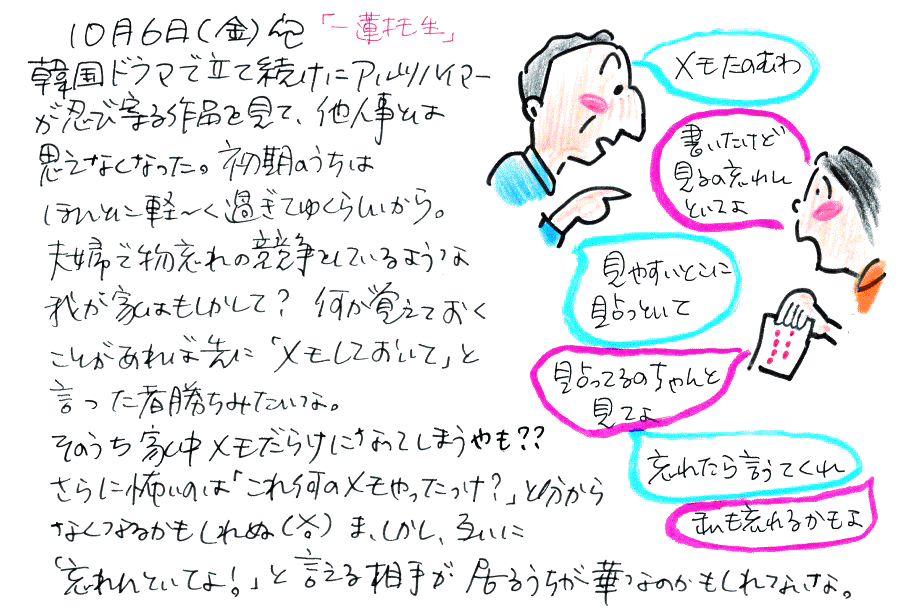 10月6日(金) 「一蓮托生」
韓国ドラマで立て続けにアルツハイマー
が忍び寄る作品を見て、他人事とは
思えなくなった。初期のうちは
ほんとに軽〜く過ぎてゆくらしいから。
夫婦で物忘れの競争をしているような
我が家はもしかして? 何か覚えておく
ことがあれば先に「メモしておいて」と
言った者勝ちみたいな。
そのうち家中メモだらけになってしまうやも??
さらに怖いのは「これ何のメモやったっけ?」と分から
なくなるかもしれぬ(笑) ま、しかし、互いに
「忘れんといてよ!」と言える相手が居るうちが華なのかもしれないな。
メモたのむわ
書いたけど
見るの忘れん
といてよ
見やすいとこに
貼っといて
貼ってるのちゃんと
見てよ
忘れたら言うてくれ
私も忘れるかもよ